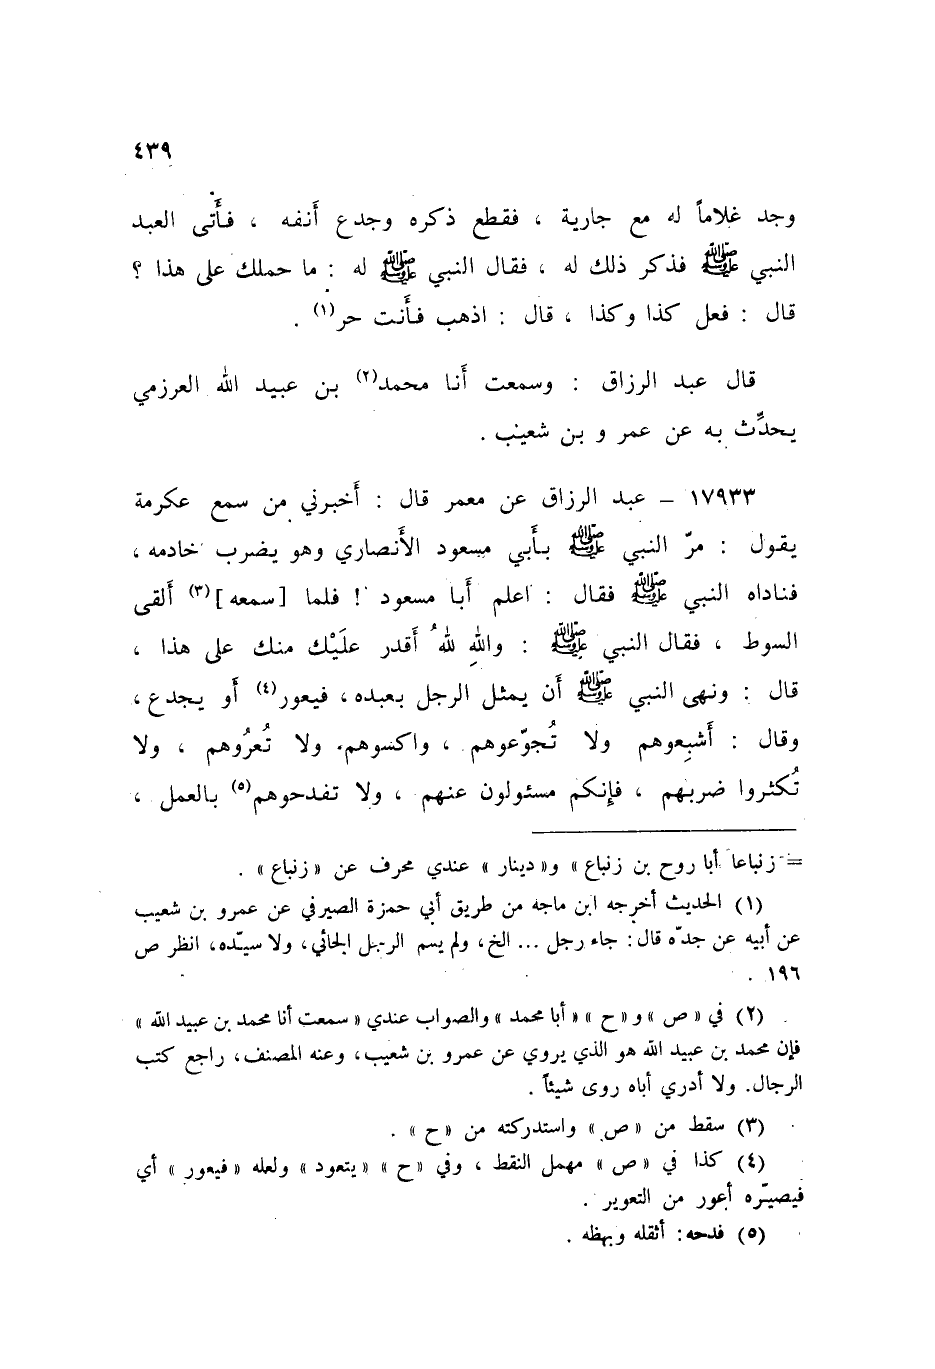 ٤٣٩
وجد غلاماً له مع جارية ، فقطع ذكره وجدع أَنفه ، فأَتى العبد
النبي ﷺ فذكر ذلك له ، فقال النبي ﷺ له : ما حملك على هذا ؟
قال : فعل كذا وكذا ، قال : اذهب فأَنت حر(١) .
قال عبد الرزاق : وسمعت أَنا محمد(٢) بن عبيد الله العرزمي
يحدِّث به عن عمر و بن شعيب .
١٧٩٣٣ – عبد الرزاق عن معمر قال : أَخبرني من سمع عكرمة
يقول : مرّ النبي ﷺ بأَبي مسعود الأَنصاري وهو يضرب خادمه ،
فناداه النبي ﷺ فقال : اعلم أَبا مسعود ! فلما [سمعه](٣) أَلقى
السوط ، فقال النبي ﷺ : واللهِ للهُ أَقدر علَيْك منك على هذا ،
قال : ونهى النبي ﷺ أَن يمثل الرجل بعبده ، فيعور(٤) أَو يجدع ،
وقال : أَشبِعوهم ولا تُجوّعوهم ، واكسوهم ولا تُعرُوهم ، ولا
تُكثروا ضربهم ، فإنكم مسئولون عنهم ، ولا تفدحوهم(٥) بالعمل ،
= زنباعا أبا روح بن زنباع » و« دينار » عندي محرف عن « زنباع » .
(١) الحديث أخرجه ابن ماجه من طريق أبي حمزة الصيرفي عن عمرو بن شعيب
عن أبيه عن جدّه قال : جاء رجل ... الخ ، ولم يسم الرجل الجائي ، ولا سيّده ، انظر ص
١٩٦ .
(٢) في « ص » و« ح » « أبا محمد » والصواب عندي « سمعت أنا محمد بن عبيد الله »
فإن محمد بن عبيد الله هو الذي يروي عن عمرو بن شعيب ، وعنه المصنف ، راجع كتب
الرجال . ولا أدري أباه روى شيئاً .
(٣) سقط من « ص » واستدركته من « ح » .
(٤) كذا في « ص » مهمل النقط ، وفي « ح » « يتعود » ولعله « فيعور » أي
فيصيّره أعور من التعوير .
(٥) فدحه : أثقله وبهظه .